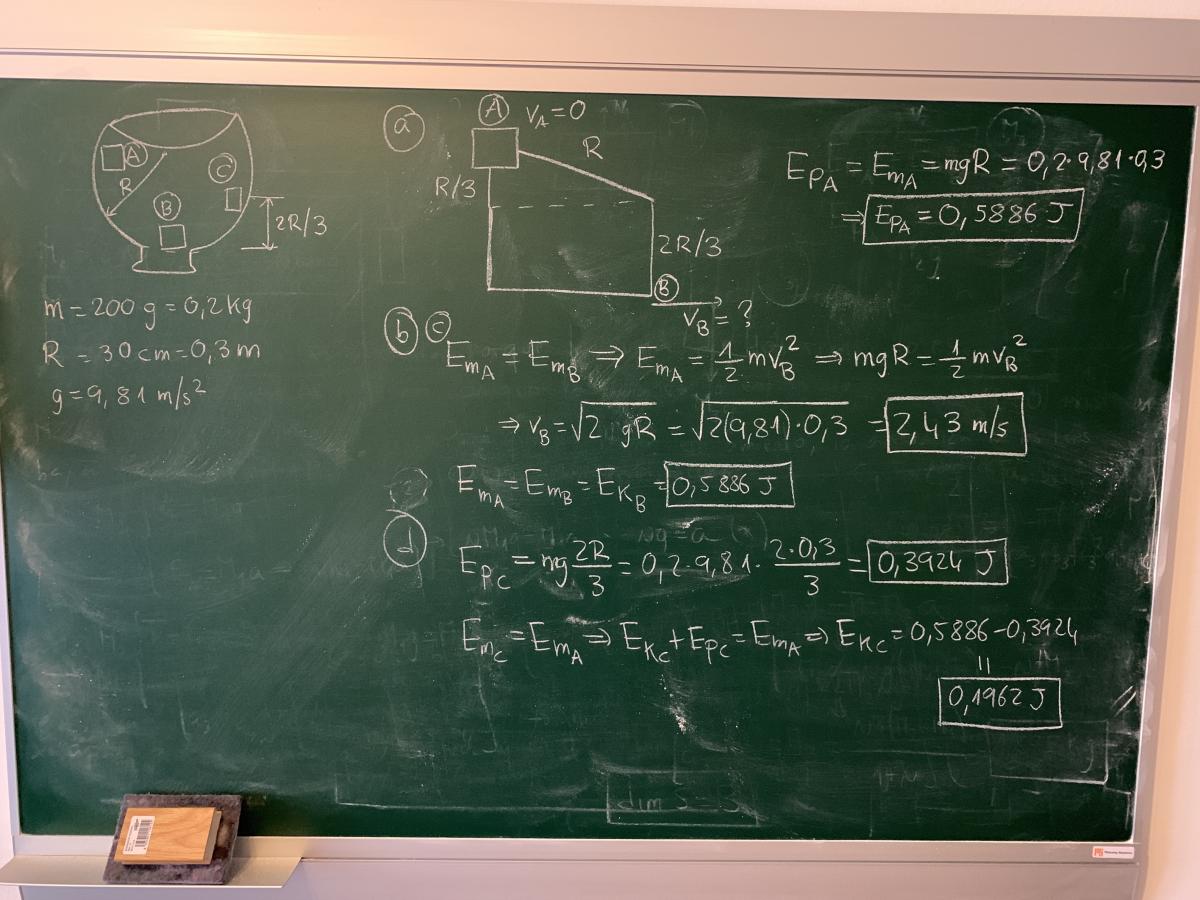 A
C
R
B
2R/3
m = 200 g = 0,2 kg
R = 30 cm = 0,3 m
g = 9,81 m/s²
a
A v_A = 0
R
R/3
2R/3
B
v_B = ?
E_PA = E_mA = mgR = 0,2·9,81·0,3
⇒ E_PA = 0,5886 J
b c
E_mA = E_mB ⇒ E_mA = 1/2 mv_B² ⇒ mgR = 1/2 mv_B²
⇒ v_B = √2 gR = √2(9,81)·0,3 = 2,43 m/s
E_mA = E_mB = E_KB = 0,5886 J
d
E_PC = mg 2R/3 = 0,2·9,81· 2·0,3/3 = 0,3924 J
E_mC = E_mA ⇒ E_KC + E_PC = E_mA ⇒ E_KC = 0,5886 - 0,3924
=
0,1962 J